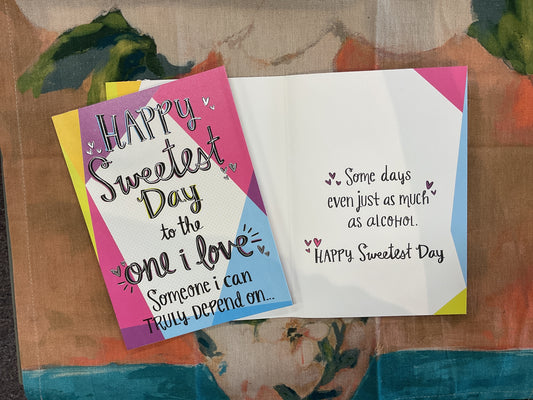 HAPPY
Sweetest
Day
to the
one i love
Someone i can
TRULY DEPEND ON...
Some days
even just as much
as alcohol.
HAPPY Sweetest Day